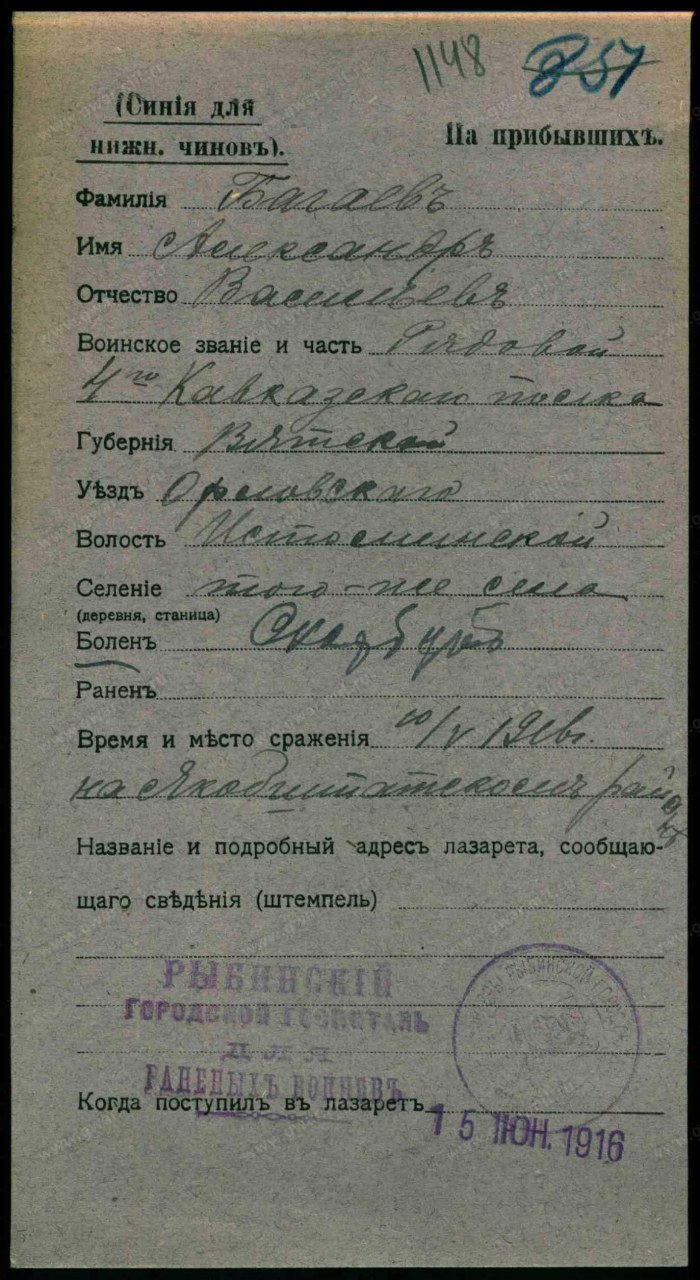 1148 857
(Синія для
нижн. чиновъ).
На прибывшихъ.
Фамилія Багаевъ
Имя Александръ
Отчество Васильевъ
Воинское званіе и часть Рядовой
4го Кавказскаго полка
Губернія Вятской
Уѣздъ Орловскаго
Волость Истоминской
Селеніе того-же села
(деревня, станица)
Боленъ Скорбутъ
Раненъ
Время и мѣсто сраженія 10/V 1916г.
на Якобштатскомъ районѣ
Названіе и подробный адресъ лазарета, сообщаю-
щаго свѣдѣнія (штемпель)
РЫБИНСКІЙ
ГОРОДСКОЙ ГОСПИТАЛЬ
ДЛЯ
РАНЕНЫХЪ ВОИНОВЪ
Когда поступилъ въ лазаретъ
15 ІЮН. 1916